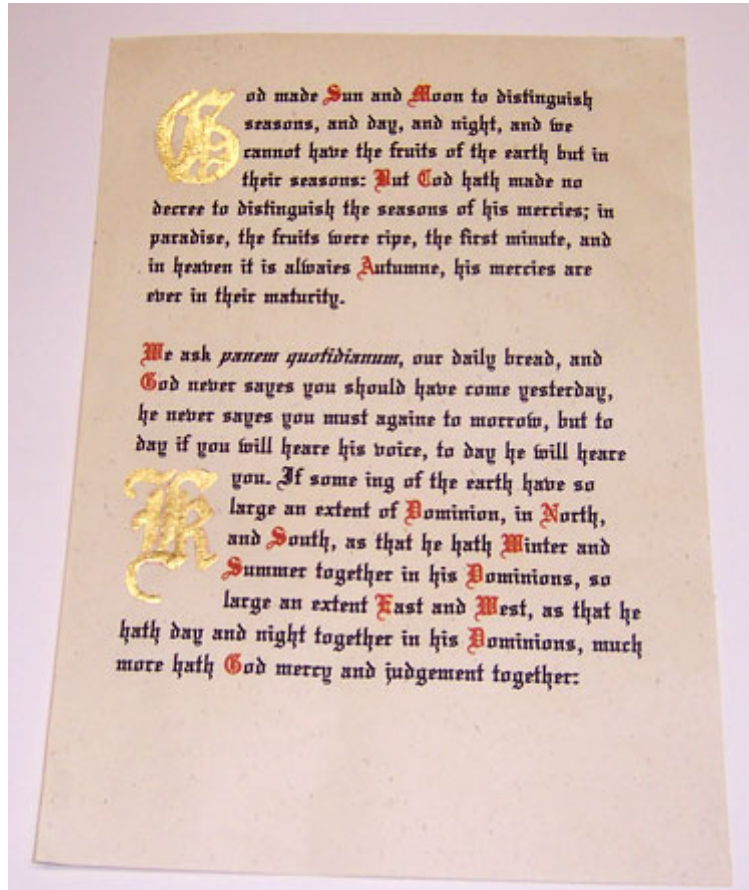 God made Sun and Moon to distinguish
seasons, and day, and night, and we
cannot have the fruits of the earth but in
their seasons: But God hath made no
decree to distinguish the seasons of his mercies; in
paradise, the fruits were ripe, the first minute, and
in heaven it is alwaies Autumne, his mercies are
ever in their maturity.
We ask panem quotidianum, our daily bread, and
God never sayes you should have come yesterday,
he never sayes you must againe to morrow, but to
day if you will heare his voice, to day he will heare
you. If some King of the earth have so
large an extent of Dominion, in North,
and South, as that he hath Winter and
Summer together in his Dominions, so
large an extent East and West, as that he
hath day and night together in his Dominions, much
more hath God mercy and judgement together: